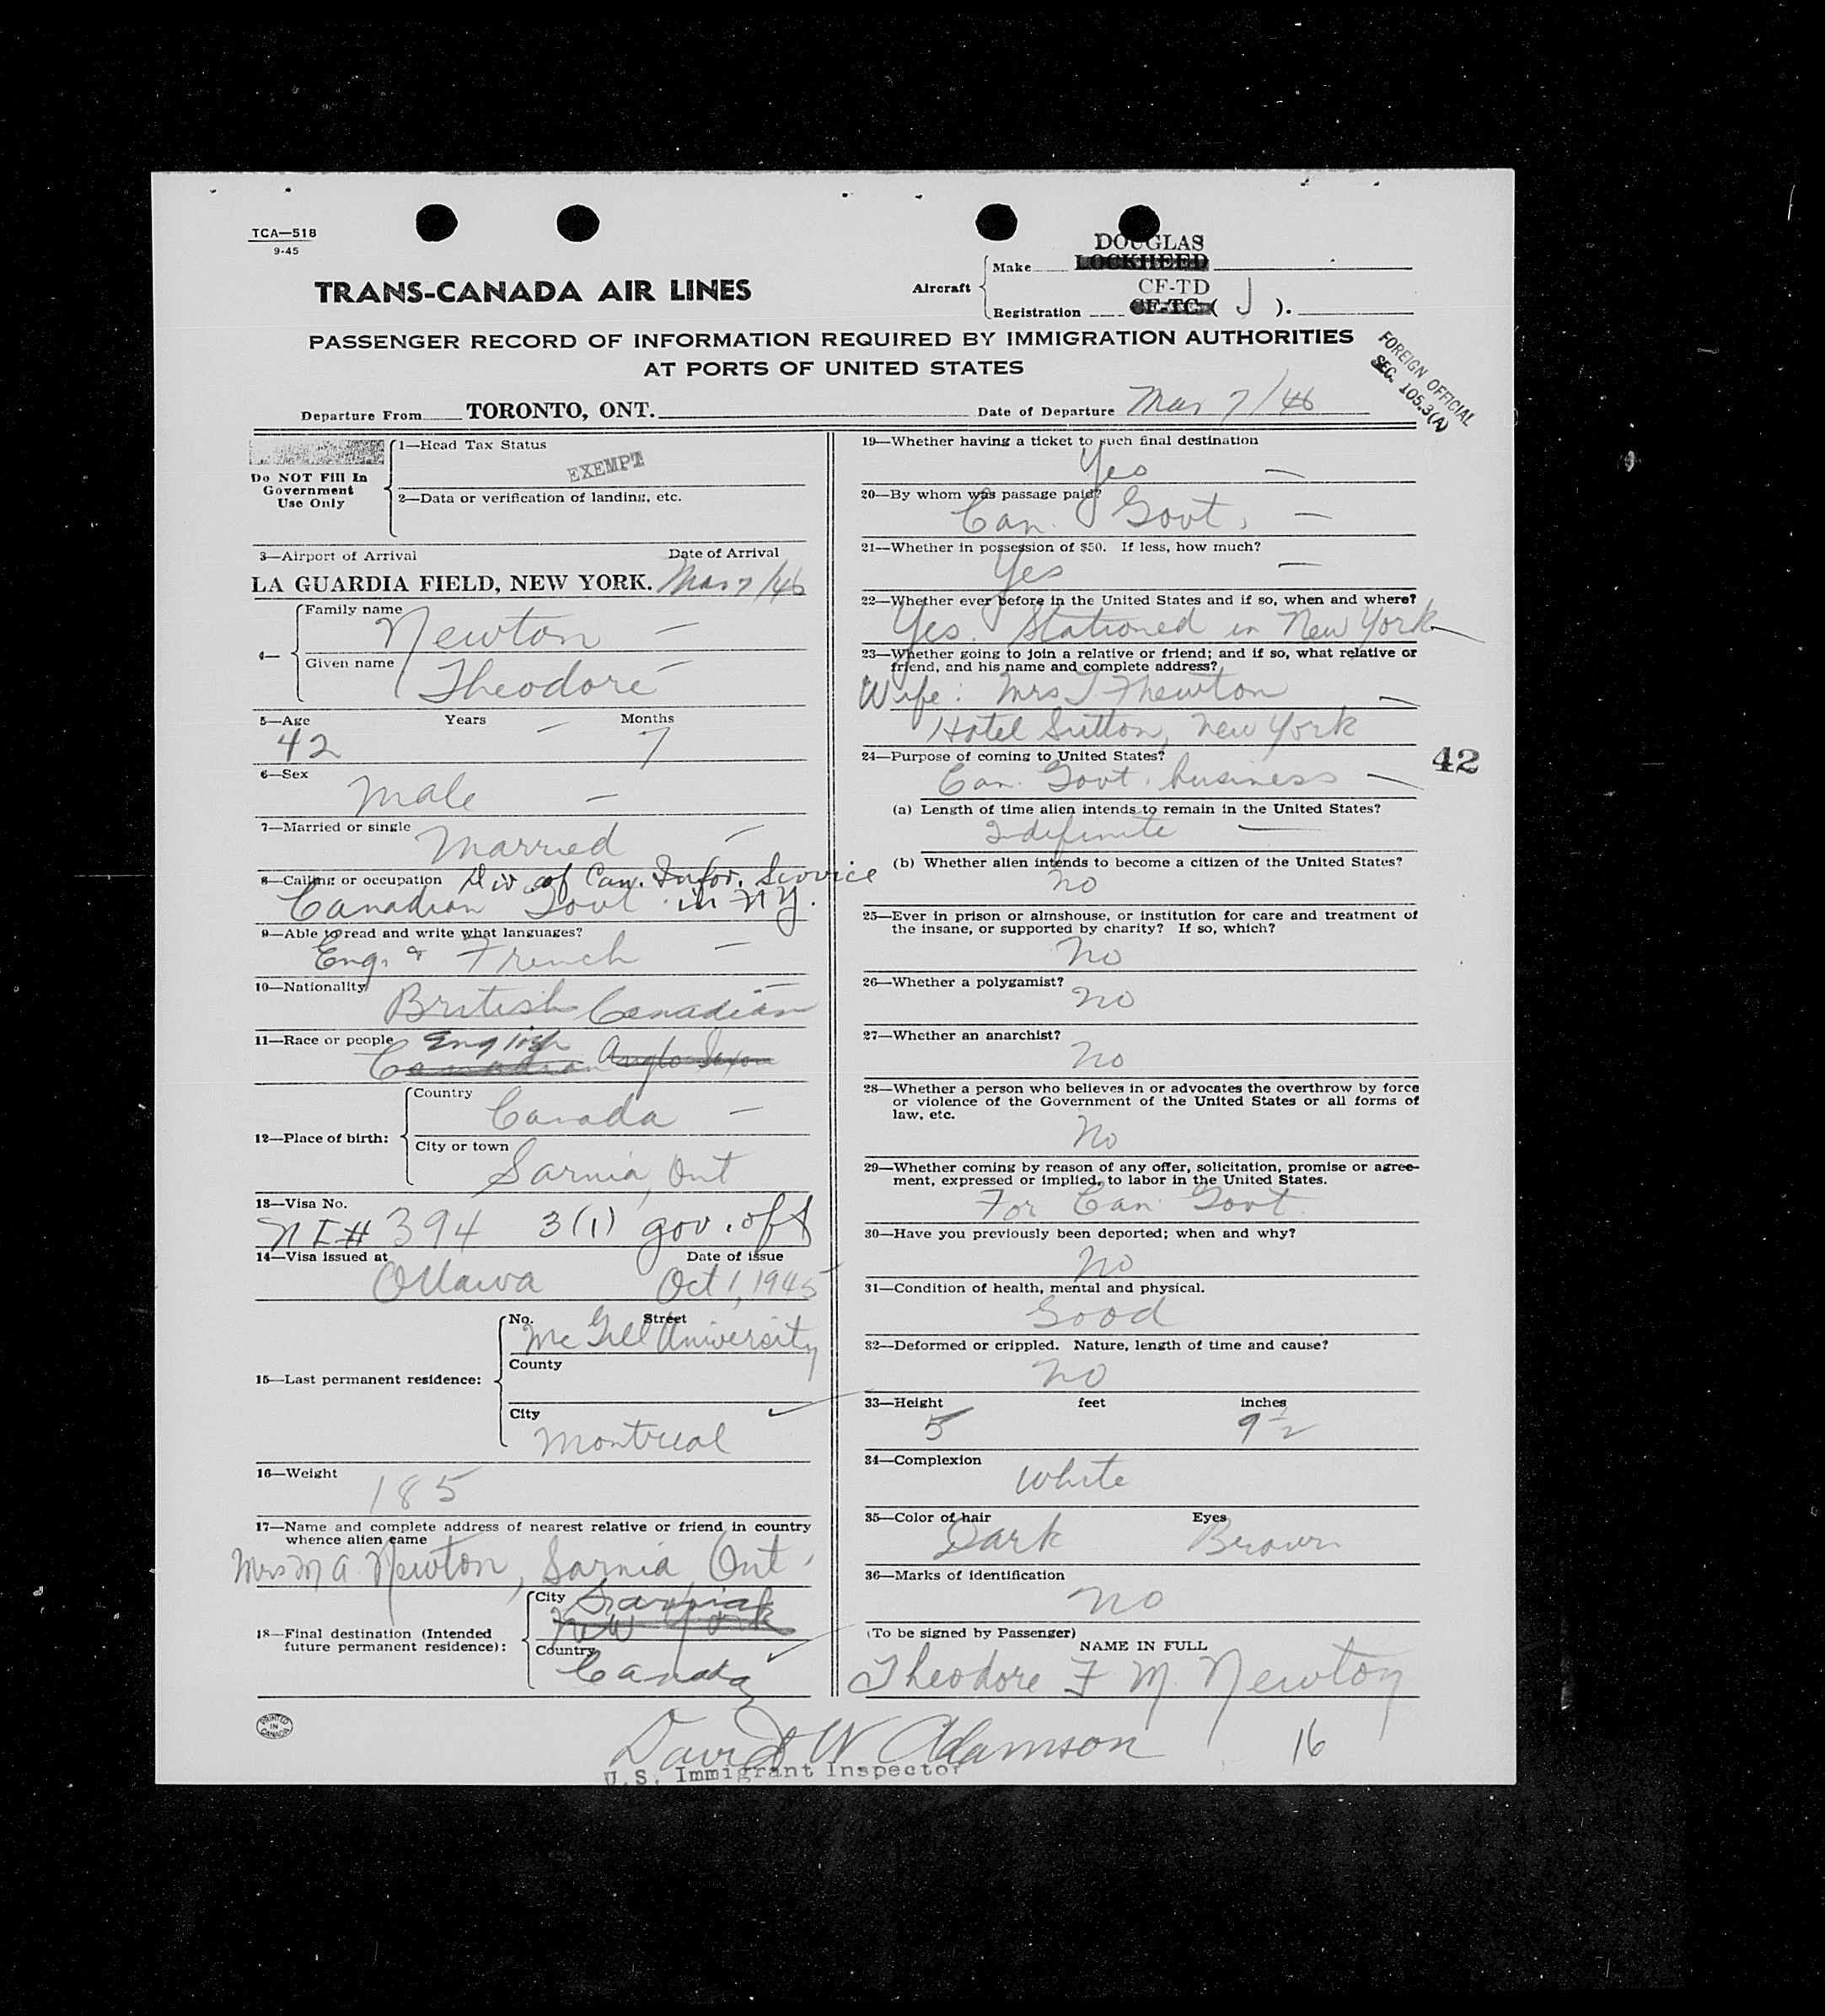 TCA—518
9-45
TRANS-CANADA AIR LINES
Aircraft
Make
DOUGLAS
LOCKHEED
Registration
CF-TD
CF-TC-( J ).
PASSENGER RECORD OF INFORMATION REQUIRED BY IMMIGRATION AUTHORITIES
AT PORTS OF UNITED STATES
FOREIGN OFFICIAL
SEC. 105.3(A)
Departure From TORONTO, ONT. Date of Departure Mar 7/46
Do NOT Fill In
Government
Use Only
1—Head Tax Status
EXEMPT
2—Data or verification of landing, etc.
3—Airport of Arrival Date of Arrival
LA GUARDIA FIELD, NEW YORK. Mar 7/46
4—
Family name
Newton —
Given name
Theodore —
5—Age Years Months
42 — 7
6—Sex
Male —
7—Married or single
Married —
8—Calling or occupation Div of Can. Infor. Service
Canadian Govt. in NY.
9—Able to read and write what languages?
Eng. & French —
10—Nationality
British Canadian
11—Race or people English
Canadian Anglo Saxon
12—Place of birth:
Country
Canada —
City or town
Sarnia, Ont
13—Visa No.
NI# 394 3(1) gov. off
14—Visa issued at Date of issue
Ottawa Oct 1, 1945
15—Last permanent residence:
No. Street
McGill University
County
City
Montreal
16—Weight
185
17—Name and complete address of nearest relative or friend in country
whence alien came
Mrs M A Newton, Sarnia, Ont.
18—Final destination (Intended
future permanent residence):
City Sarnia
New York
Country
Canada
PRINTED
IN
CANADA
19—Whether having a ticket to such final destination
Yes —
20—By whom was passage paid?
Can. Govt. —
21—Whether in possession of $50. If less, how much?
Yes —
22—Whether ever before in the United States and if so, when and where?
Yes. Stationed in New York —
23—Whether going to join a relative or friend; and if so, what relative or
friend, and his name and complete address?
Wife: Mrs T Newton —
Hotel Sutton, New York
24—Purpose of coming to United States?
Can. Govt. business —
42
(a) Length of time alien intends to remain in the United States?
Indefinite —
(b) Whether alien intends to become a citizen of the United States?
no
25—Ever in prison or almshouse, or institution for care and treatment of
the insane, or supported by charity? If so, which?
no
26—Whether a polygamist?
no
27—Whether an anarchist?
no
28—Whether a person who believes in or advocates the overthrow by force
or violence of the Government of the United States or all forms of
law, etc.
no
29—Whether coming by reason of any offer, solicitation, promise or agree-
ment, expressed or implied, to labor in the United States.
For Can Govt.
30—Have you previously been deported; when and why?
no
31—Condition of health, mental and physical.
Good
32—Deformed or crippled. Nature, length of time and cause?
no
33—Height feet inches
5 9½
34—Complexion
White
35—Color of hair Eyes
Dark Brown
36—Marks of identification
no
(To be signed by Passenger)
NAME IN FULL
Theodore F M. Newton
David W Adamson 16
U.S. Immigrant Inspector